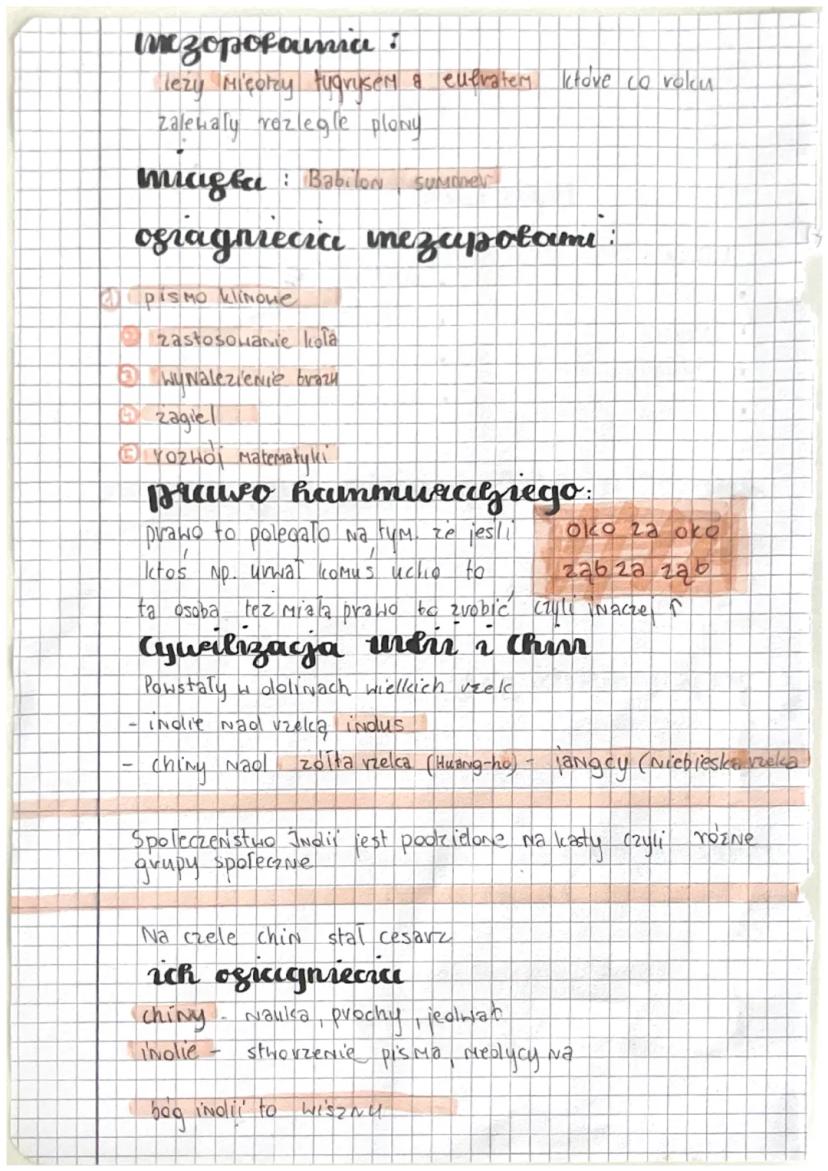 mezopotamia :
leży między tygrysem a eufratem które co roku
zalewały rozległe plony
miasta : Babilon, summer
osiągniecia mezapotami :
① pismo klinowe
② zastosowanie koła
③ wynalezienie brązu
④ żagiel
⑤ rozwój matematyki
prawo hammurabiego:
prawo to polegało na tym, że jeśli
oko za oko
ktoś np. urwał komuś ucho to
ząb za ząb
ta osoba też miała prawo to zrobić czyli inaczej ↑
cywilizacja indii i Chin
Powstały w dolinach wielkich rzek
- indie nad rzeką indus
- chiny nad żółta rzeka (Huang-ho) - jangcy (niebieska rzeka
Społeczeństwo Indii jest podzielone na kasty czyli różne
grupy społeczne
Na czele chin stał cesarz
ich osiągniecia
chiny - nauka, prochy, jedwab
indie - stworzenie pisma, medycyna
bóg indii to wisznu